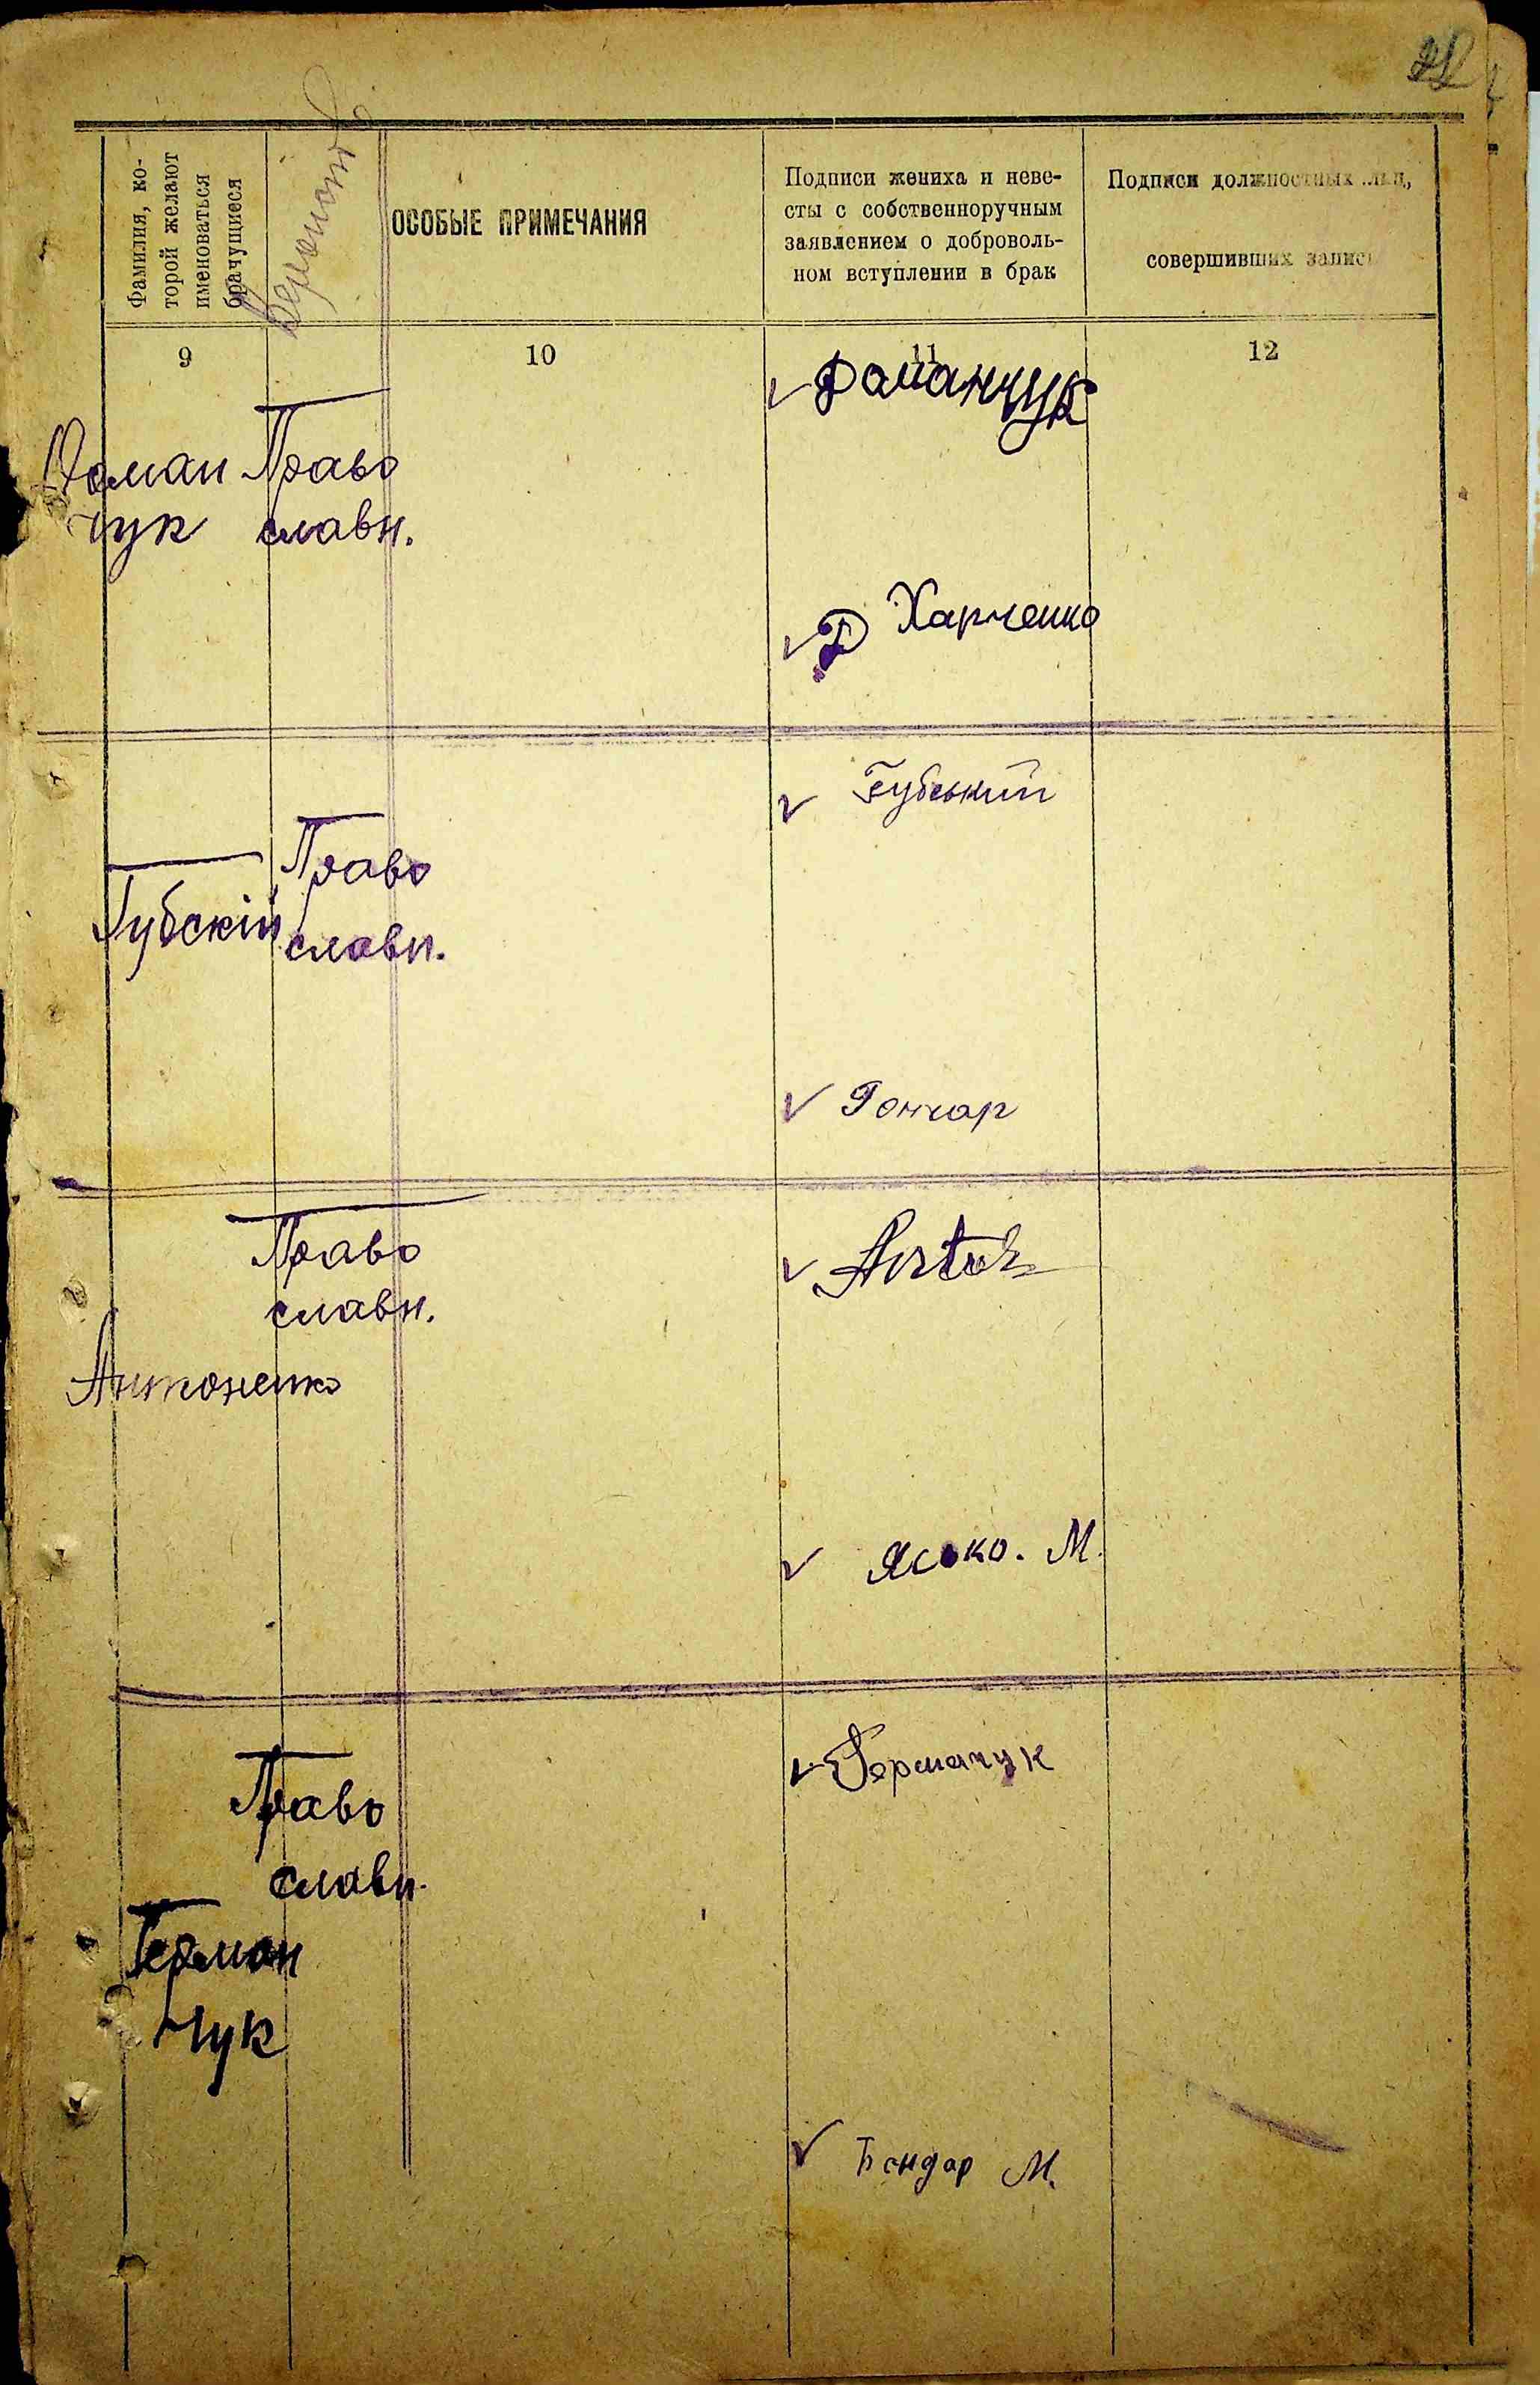 Фамилия, ко-
торой желают
именоваться
брачущиеся
ОСОБЫЕ ПРИМЕЧАНИЯ
Подписи жениха и неве-
сты с собственноручным
заявлением о доброволь-
ном вступлении в брак
Подписи должностных лиц,
совершивших запись
9
10
11
12
Романчук
Роман
чук
Право
славн.
Харченко
Губський
Право
славн.
Губскій
Гончар
Право
славн.
Антоненко
Ясько. М.
Германчук
Право
славн.
Герман
чук
Бондар М.